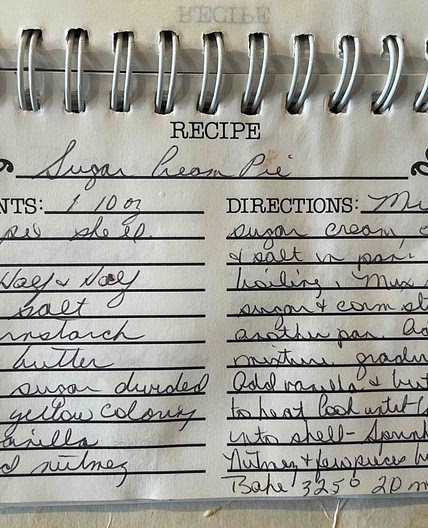 RECIPE
RECIPE
Sugar Cream Pie
NTS: 1 10 oz
pie shell
Half & Half
salt
rnstarch
butter
sugar divided
yellow coloring
anilla
d nutmeg
DIRECTIONS: Mi
sugar cream, c
& salt in pan.
boiling. Mix
sugar & corn st
another pan. Ad
mixture gradu
Add vanilla & but
to heat Cook until
into shell - Sprink
Nutmeg & few pieces bu
Bake 325° 20 m